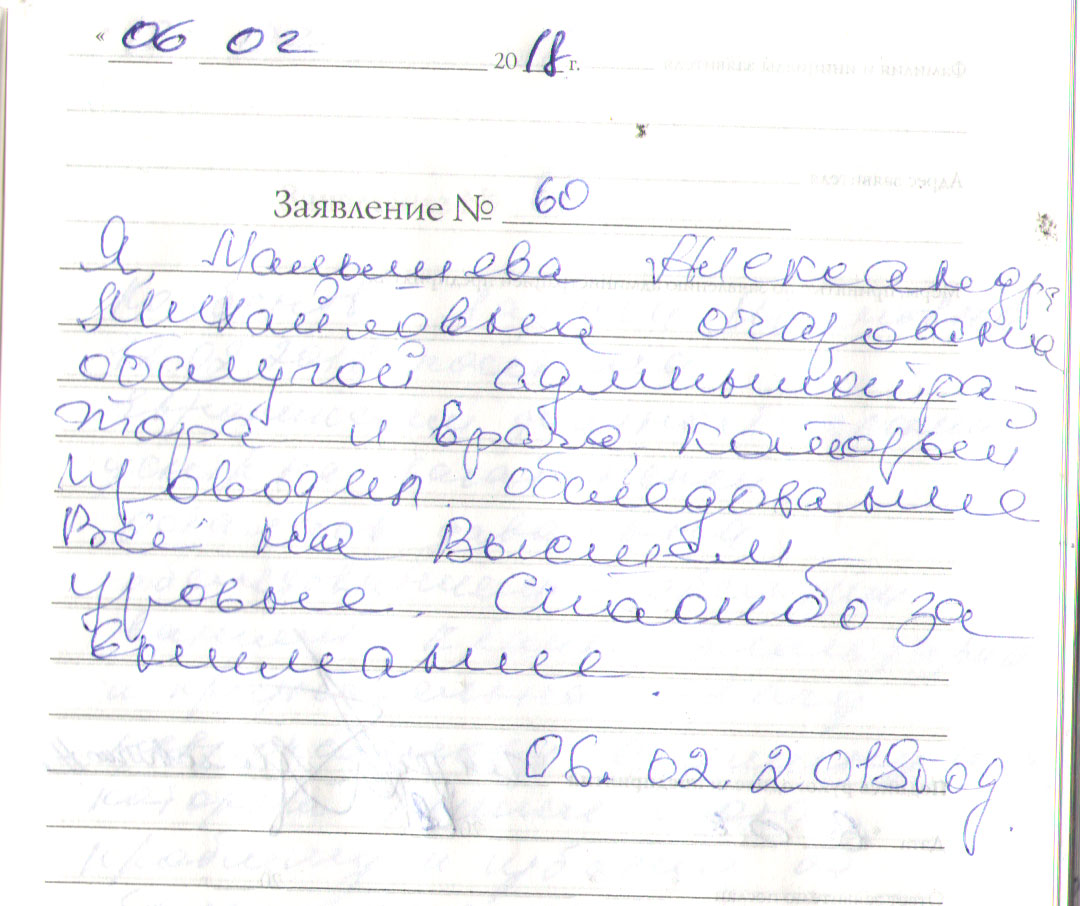 « 06 02 2018 г.
Заявление № 60
Я, Малышева Александра
Михайловна очарована
обслугой администра-
тора и врача, который
проводил обследование
Всё на Высшем
уровне. Спасибо за
внимание.
06.02.2018 год.